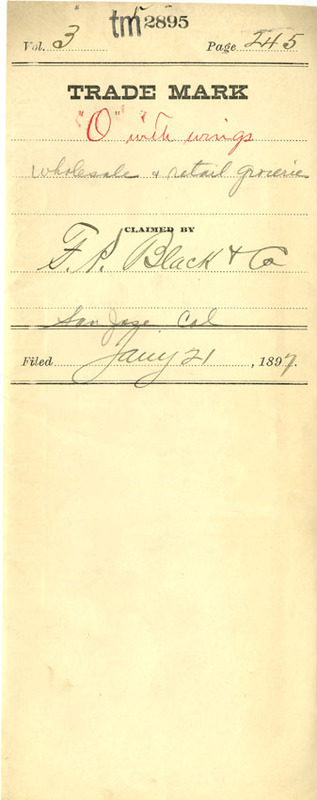 tm 2895
Vol. 3 Page 245
TRADE MARK
"O" with wings
wholesale & retail groceries
CLAIMED BY
F. P. Black & Co
San Jose, Cal
Filed Jany 21, 1897.